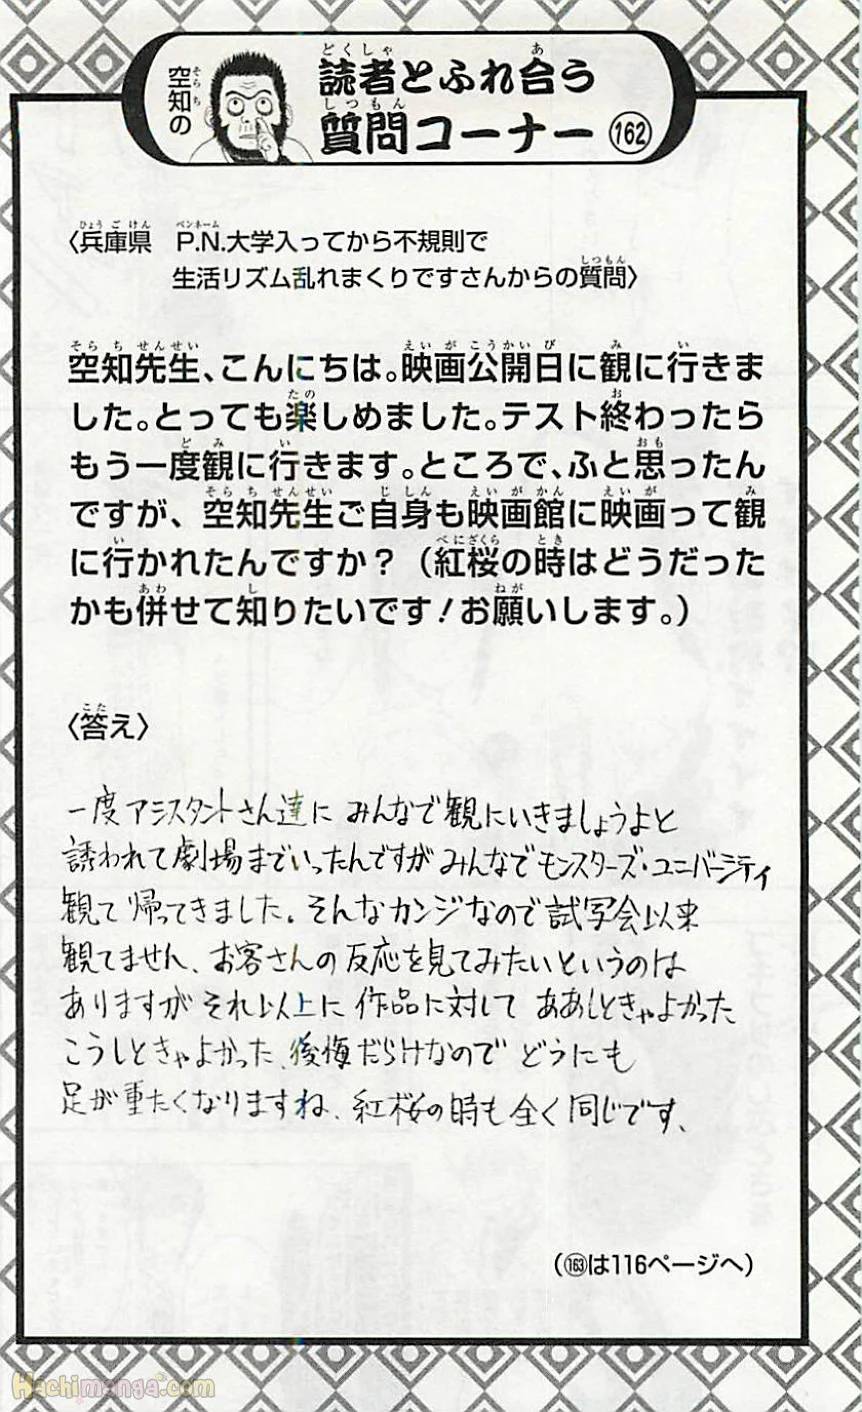 空知の
読者とふれ合う
質問コーナー 162
〈兵庫県 P.N.大学入ってから不規則で
生活リズム乱れまくりですさんからの質問〉
空知先生、こんにちは。映画公開日に観に行きま
した。とっても楽しめました。テスト終わったら
もう一度観に行きます。ところで、ふと思ったん
ですが、空知先生ご自身も映画館に映画って観
に行かれたんですか？（紅桜の時はどうだった
かも併せて知りたいです！お願いします。）
〈答え〉
一度アシスタントさん達に みんなで観にいきましょうよと
誘われて劇場までいったんですが みんなでモンスターズ・ユニバーシティ
観て帰ってきました。そんなカンジなので試写会以来
観てません、お客さんの反応を見てみたいというのは
ありますが それ以上に 作品に対して ああしときゃよかった
こうしときゃよかった、後悔だらけなので どうにも
足が重たくなりますね、紅桜の時も全く同じです、
（163は116ページへ）
Hachimanga.com